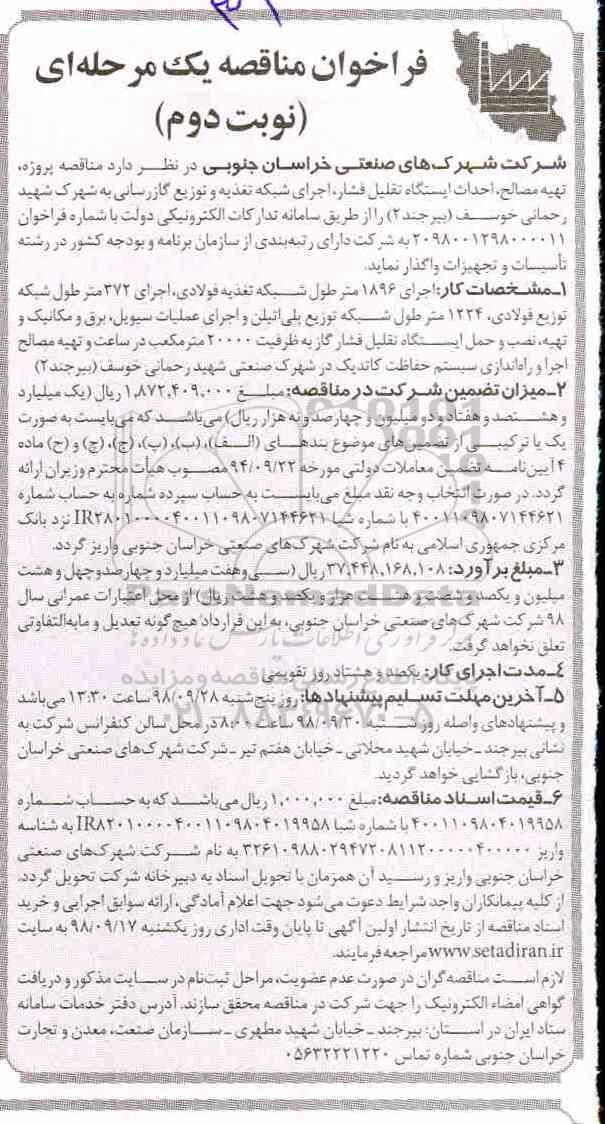 فراخوان مناقصه یک مرحله‌ای
(نوبت دوم)
شرکت شهرک‌های صنعتی خراسان جنوبی در نظر دارد مناقصه پروژه،
تهیه مصالح، احداث ایستگاه تقلیل فشار، اجرای شبکه تغذیه و توزیع گازرسانی به شهرک شهید
رحمانی خوسف (بیرجند۲) را از طریق سامانه تدارکات الکترونیکی دولت با شماره فراخوان
۲۰۹۸۰۰۱۲۹۸۰۰۰۰۱۱ به شرکت دارای رتبه‌بندی از سازمان برنامه و بودجه کشور در رشته
تأسیسات و تجهیزات واگذار نماید.
۱ـ مشخصات کار: اجرای ۱۸۹۶ متر طول شبکه تغذیه فولادی، اجرای ۳۷۲ متر طول شبکه
توزیع فولادی، ۱۲۲۴ متر طول شبکه توزیع پلی‌اتیلن و اجرای عملیات سیویل، برق و مکانیک و
تهیه، نصب و حمل ایستگاه تقلیل فشار گاز به ظرفیت ۲۰۰۰۰ مترمکعب در ساعت و تهیه مصالح
اجرا و راه‌اندازی سیستم حفاظت کاتدیک در شهرک صنعتی شهید رحمانی خوسف (بیرجند۲)
۲ـ میزان تضمین شرکت در مناقصه: مبلغ ۱,۸۷۲,۴۰۹,۰۰۰ ریال (یک میلیارد
و هشتصد و هفتاد و دو میلیون و چهارصد و نه هزار ریال) می‌باشد که می‌بایست به صورت
یک یا ترکیبی از تضمین‌های موضوع بندهای (الف)، (ب)، (پ)، (ج)، (چ) و (ح) ماده
۴ آیین‌نامه تضمین معاملات دولتی مورخه ۹۴/۰۹/۲۲ مصوب هیأت محترم وزیران ارائه
گردد. در صورت انتخاب وجه نقد مبلغ می‌بایست به حساب سپرده شماره به حساب شماره
۴۰۰۱۱۰۹۸۰۷۱۴۴۶۲۱ با شماره شبا IR۲۸۰۱۰۰۰۰۴۰۰۱۱۰۹۸۰۷۱۴۴۶۲۱ نزد بانک
مرکزی جمهوری اسلامی به نام شرکت شهرک‌های صنعتی خراسان جنوبی واریز گردد.
۳ـ مبلغ برآورد: ۳۷,۴۴۸,۱۶۸,۱۰۸ ریال (سی و هفت میلیارد و چهارصد و چهل و هشت
میلیون و یکصد و شصت و هشت هزار و یکصد و هشت ریال) از محل اعتبارات عمرانی سال
۹۸ شرکت شهرک‌های صنعتی خراسان جنوبی، به این قرارداد هیچ‌گونه تعدیل و مابه‌التفاوتی
تعلق نخواهد گرفت.
۴ـ مدت اجرای کار: یکصد و هشتاد روز تقویمی
۵ـ آخرین مهلت تسلیم پیشنهادها: روز پنج‌شنبه ۹۸/۰۹/۲۸ ساعت ۱۳:۳۰ می‌باشد
و پیشنهادهای واصله روز شنبه ۹۸/۰۹/۳۰ ساعت ۸:۰۰ در محل سالن کنفرانس شرکت به
نشانی بیرجند ـ خیابان شهید محلاتی ـ خیابان هفتم تیر ـ شرکت شهرک‌های صنعتی خراسان
جنوبی، بازگشایی خواهد گردید.
۶ـ قیمت اسناد مناقصه: مبلغ ۱,۰۰۰,۰۰۰ ریال می‌باشد که به حساب شماره
۴۰۰۱۱۰۹۸۰۴۰۱۹۹۵۸ با شماره شبا IR۸۲۰۱۰۰۰۰۴۰۰۱۱۰۹۸۰۴۰۱۹۹۵۸ به شناسه
واریز ۳۲۶۱۰۹۸۸۰۲۹۴۷۲۰۸۱۱۲۰۰۰۰۰۴۰۰۰۰۰ به نام شرکت شهرک‌های صنعتی
خراسان جنوبی واریز و رسید آن همزمان با تحویل اسناد به دبیرخانه شرکت تحویل گردد.
از کلیه پیمانکاران واجد شرایط دعوت می‌شود جهت اعلام آمادگی، ارائه سوابق اجرایی و خرید
اسناد مناقصه از تاریخ انتشار اولین آگهی تا پایان وقت اداری روز یکشنبه ۹۸/۰۹/۱۷ به سایت
www.setadiran.ir مراجعه فرمایند.
لازم است مناقصه‌گران در صورت عدم عضویت، مراحل ثبت‌نام در سایت مذکور و دریافت
گواهی امضاء الکترونیک را جهت شرکت در مناقصه محقق سازند. آدرس دفتر خدمات سامانه
ستاد ایران در استان: بیرجند ـ خیابان شهید مطهری ـ سازمان صنعت، معدن و تجارت
خراسان جنوبی شماره تماس ۰۵۶۳۲۲۲۱۲۳۰